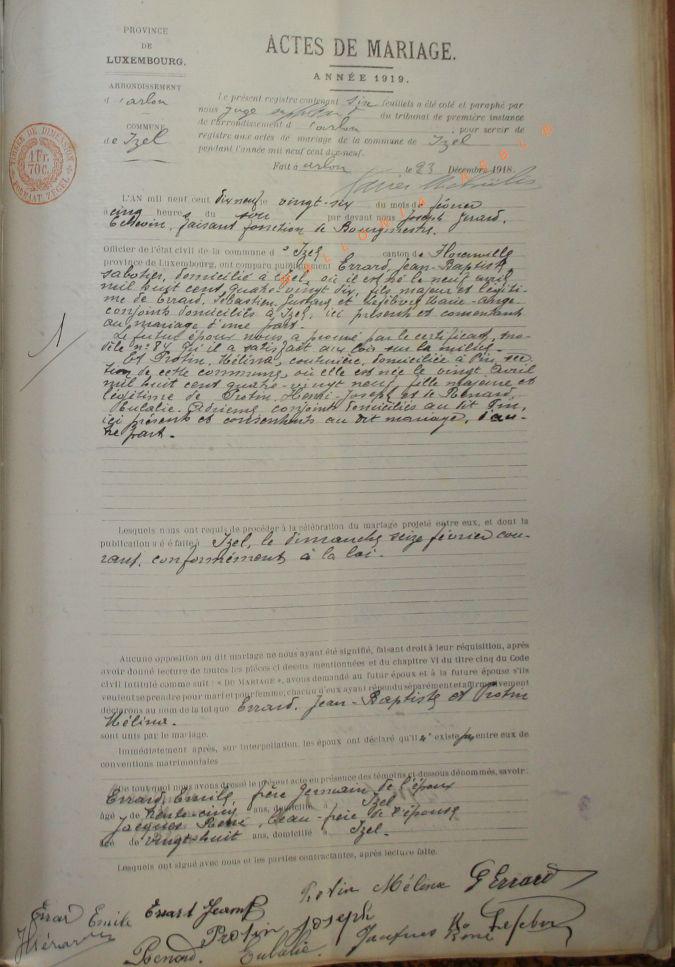 PROVINCE
DE
LUXEMBOURG.
ARRONDISSEMENT
d'arlon
COMMUNE
de Izel
TIMBRE DE DIMENSION
1 Fr.
70c.
ACTES DE MARIAGE.
ANNÉE 1919.
Le présent registre contenant six feuillets a été coté et paraphé par
nous juge du tribunal de première instance
de l'arrondissement d'arlon ; pour servir de
registre aux actes de mariage de la commune de Izel
pendant l'année mil neuf cent dix-neuf.
Fait à arlon le 23 Décembre 1918.
L'AN mil neuf cent dix neuf le vingt-six du mois de février
à cinq heures du soir par devant nous Joseph Gérard,
Echevin, faisant fonction de Bourgmestre,
Officier de l'état civil de la commune d'Izel canton de Florenville
province de Luxembourg, ont comparu publiquement Errard, Jean-Baptiste
sabotier, domicilié à Izel, où il est né le neuf avril
mil huit cent quatre-vingt dix, fils majeur et légiti-
me de Errard, Sébastien, Gustave et Lefèbvre, Marie-Ange
conjoints domiciliés à Izel, ici présents et consentants
au mariage d'une part.
1
Le futur époux nous a prouvé par le certificat, mo-
dèle n° 34 qu'il a satisfait aux lois sur la milice.
Et Protin, Mélina, couturière, domiciliée à Pin, sec-
tion de cette commune, où elle est née le vingt avril
mil huit cent quatre-vingt neuf, fille majeure et
légitime de Protin, Henri-Joseph et de Renard,
Eulalie conjoints domiciliés au dit Pin,
ici présents et consentants au dit mariage, d'au-
tre part.
Lesquels nous ont requis de procéder à la célébration du mariage projeté entre eux, et dont la
publication a été faite à Izel, le dimanche seize février cou-
rant, conformément à la loi.
Aucune opposition au dit mariage ne nous ayant été signifié, faisant droit à leur réquisition, après
avoir donné lecture de toutes les pièces ci dessus mentionnées et du chapitre VI du titre cinq du Code
civil intitulé comme suit : « DU MARIAGE », avons demandé au futur époux et à la future épouse s'ils
veulent se prendre pour mari et pour femme; chacun d'eux ayant répondu séparément et affirmativement
déclarons au nom de la loi que Errard, Jean-Baptiste et Protin
Mélina.
sont unis par le mariage.
Immédiatement après, sur interpellation, les époux ont déclaré qu'il n'existe pas entre eux de
conventions matrimoniales
De tout quoi nous avons dressé le présent acte en présence des témoins ci-dessous dénommés, savoir:
Errard, Emile, frère germain de l'époux
âgé de trente-cinq ans, domicilié à Izel
Jacques René, beau-frère de l'épouse
âgé de vingt-huit ans, domicilié à Izel.
Lesquels ont signé avec nous et les parties contractantes, après lecture faite.
Protin Mélina G Errard
Errard Emile Errard Jean
Protin Joseph Lefebvre
Renard Eulalie Jacques René